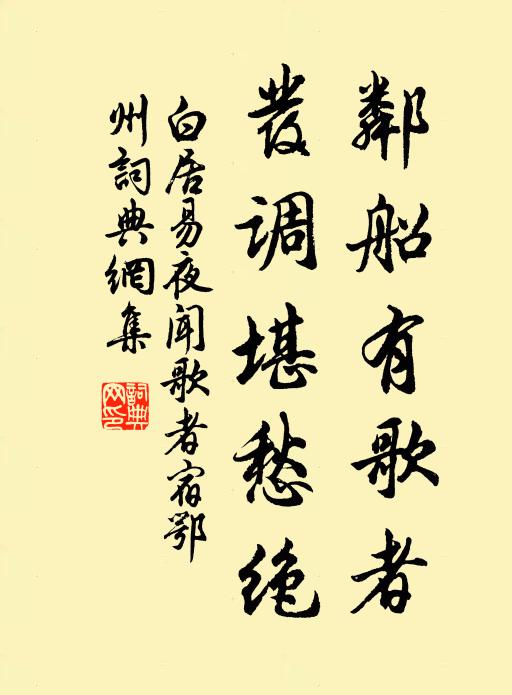 鄰船有歌者
發調堪愁絶
白居易夜聞歌者宿鄂
州詞典網集
詞典網印